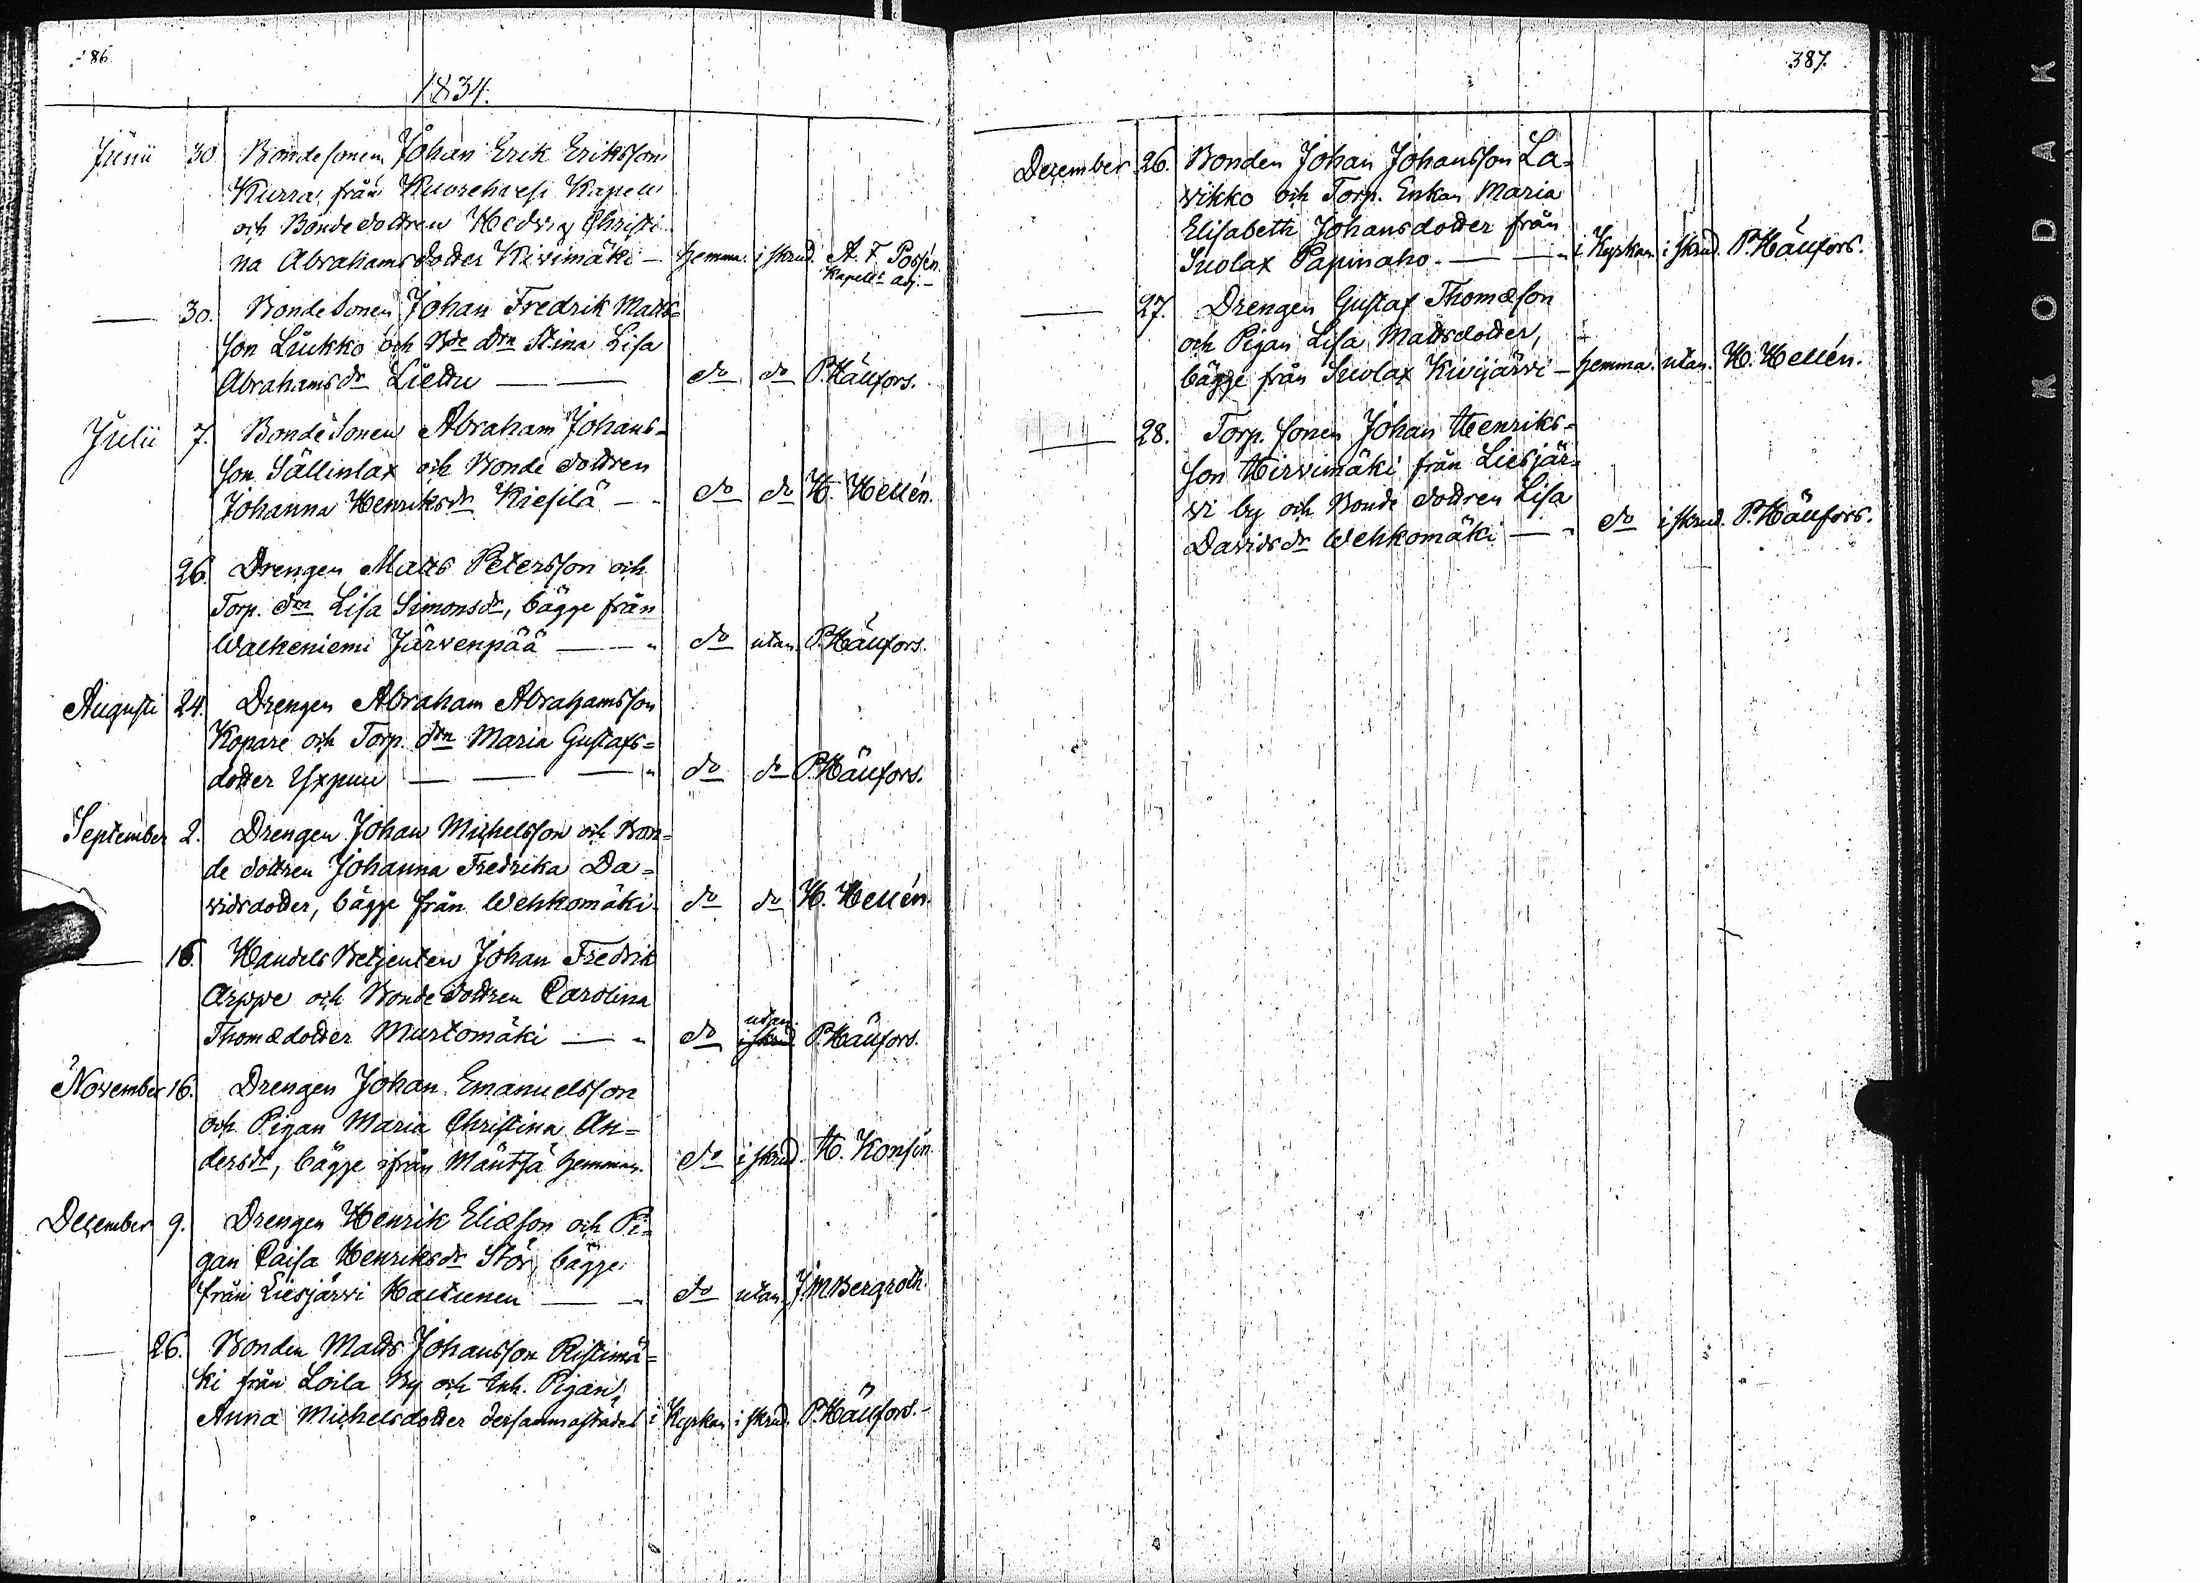 86.
1834.
Junii 30. Bondesonen Johan Erik Eriksson
Kurra, från Kuorehvesi Kapell
och Bondedottren Hedvig Christi-
na Abrahamsdotter Kivimäki — hemma. i skrud. A. F. Posén.
Kapells adj. —
— 30. Bondesonen Johan Fredrik Matts=
son Luukko och Bde dtrn Stina Lisa
Abrahamsdr Liettu — — do do P. Häufors.
Julii 7. Bondesonen Abraham Johans=
son Sällinlax och Bonde dottren
Johanna Henriksdr Kiesilä — " do do H. Hellén.
26. Drengen Matts Petersson och
Torp. dtrn Lisa Simonsdr, bägge från
Walkeniemi Järvenpää — — " do utan. P. Häufors.
Augusti 24. Drengen Abraham Abrahamsson
Kopare och Torp. dtrn Maria Gustafs=
dotter Yxpuu — — — " do do P. Häufors.
September 2. Drengen Johan Michelsson och Bon=
de dottren Johanna Fredrika Da=
vidsdotter, bägge från Wehkomäki. do do H. Hellén.
— 16. Handels Betjenten Johan Fredrik
Arppe och Bonde dottren Carolina
utan.
Thomædotter Murtomäki — " do i skrud P. Häufors.
November 16. Drengen Johan Emanuelsson
och Pigan Maria Christina An=
dersdr, bägge ifrån Mäntsä hemman. do i skrud. H. Konsin.
December 9. Drengen Henrik Eliæson och Pi=
gan Caisa Henriksdr Stör, bägge
från Liesjärvi Haltunen — " do utan. J. M Bergroth.
— 26. Bonden Matts Johansson Ristimä=
ki från Loila By och Inh. Pigan,
Anna Michelsdotter dersammastädes i Kyrkan i skrud. P. Häufors. —
387.
December 26. Bonden Johan Johansson La=
vikko och Torp. Enkan Maria
Elisabeth Johansdotter från
Suolax Papinaho. — — " i Kyrkan i skrud. P. Häufors.
— 27. Drengen Gustaf Thomæson
och Pigan Lisa Mattsdotter,
bägge från Suolax Kivijärvi — hemma. utan. H. Hellén.
— 28. Torp. sonen Johan Henriks=
son Hirvimäki från Liesjär=
vi by och Bonde dottren Lisa
Davidsdr Wehkomäki — " do i skrud. P. Häufors.
KODAK